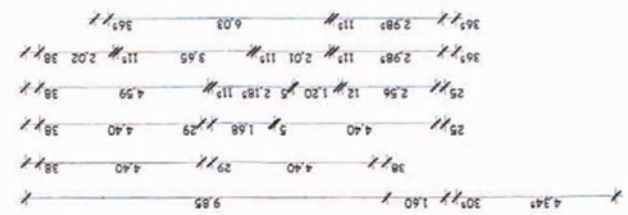 4,34⁵ 30⁵ 1,60 9,85
38 4,40 29 4,40 38
25 4,40 5 1,68 29 4,40 38
25 2,56 12 1,20 5 2,18⁵ 11⁵ 4,59 38
36⁵ 2,98⁵ 11⁵ 2,01 11⁵ 3,65 11⁵ 2,02 38
36⁵ 2,98⁵ 11⁵ 6,03 36⁵